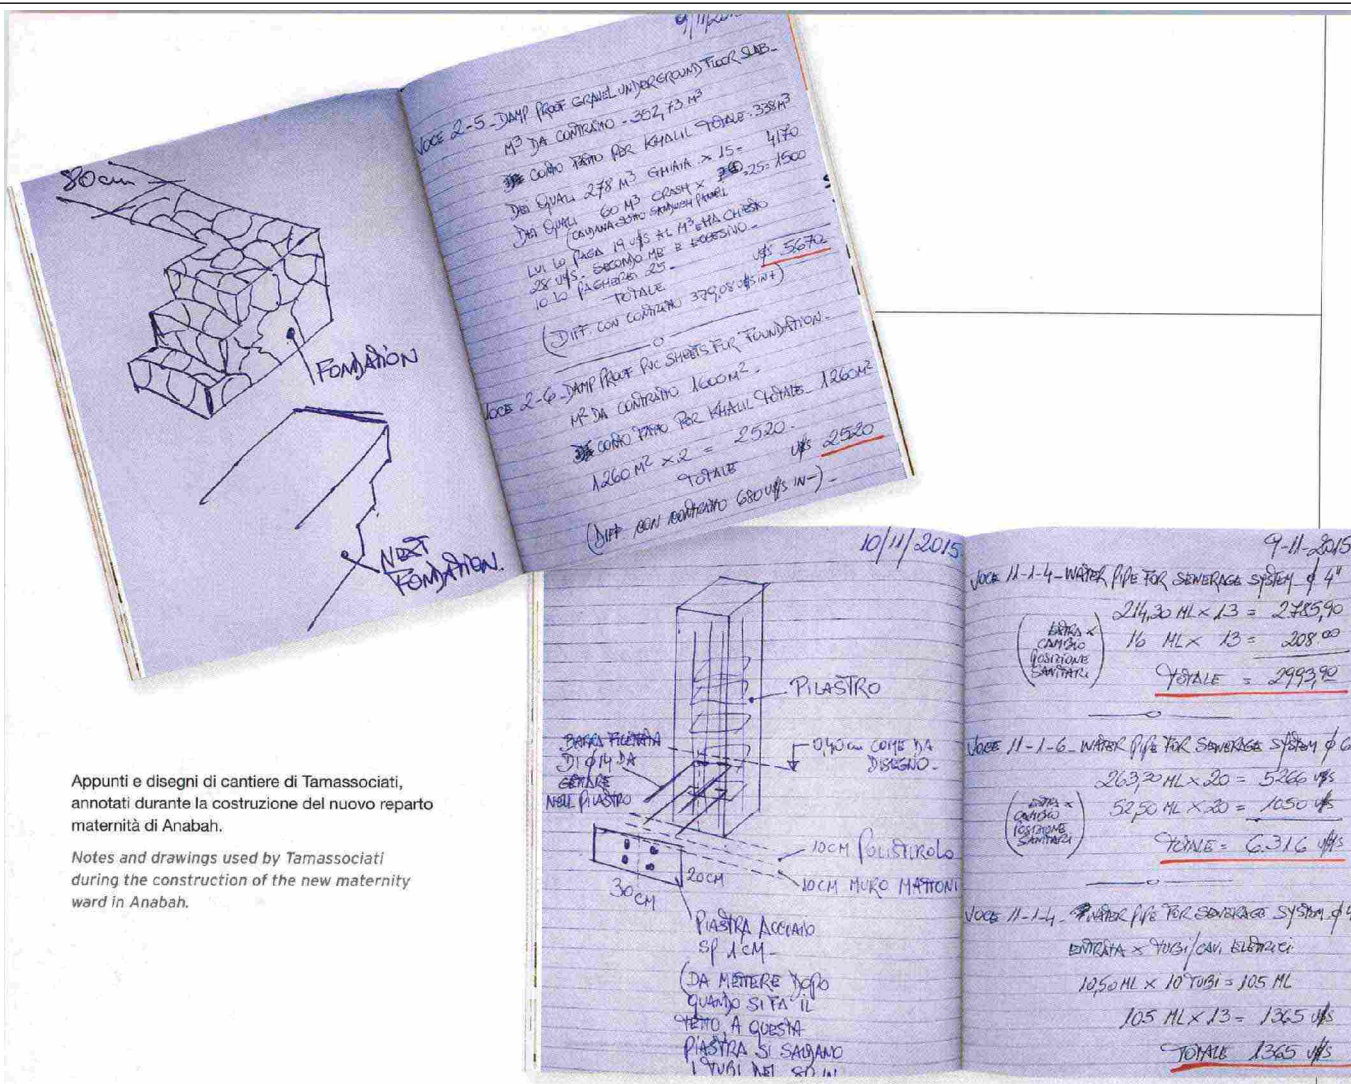 9/11/2015
VOCE 2-5-DAMP PROOF GRAVEL UNDERGROUND FLOOR SLAB-
M³ DA CONTRATTO - 352,73 M³
COMO FATTO PER KHALIL TOTALE. 338 M³
DEI QUALI 278 M³ GHIAIA × 15 = 4170
DEI QUALI 60 M³ CRASH × 25 = 1500
(CALDANA SOTTO SANDWICH PANEL)
LUI LO PAGA 19 U$S AL M³ E HA CHIESTO
28 U$S - SECONDO ME È ECCESIVO -
IO LO PAGHEREI 25 -
TOTALE U$S 5670
(DIFF. CON CONTRATTO 379,08 U$S IN +)
VOCE 2-6-DAMP PROOF PVC SHEETS FUR FOUNDATION-
M² DA CONTRATTO 1600 M² -
COMO FATTO PER KHALIL TOTALE - 1260 M²
1260 M² × 2 = 2520 -
TOTALE U$S 2520
(DIFF CON CONTRATTO 680 U$S IN -) -
80 cm
FONDATION
NEXT
FONDATION.
Appunti e disegni di cantiere di Tamassociati,
annotati durante la costruzione del nuovo reparto
maternità di Anabah.
Notes and drawings used by Tamassociati
during the construction of the new maternity
ward in Anabah.
10/11/2015
PILASTRO
BARRA FILETTATA
DI Ø14 DA
GETTARE
NELL PILASTRO
0,40 cm COME DA
DISEGNO -
10CM POLISTIROLO
10CM MURO MATTONI
20CM
30CM
PIASTRA ACCIAIO
SP 1CM -
(DA METTERE DOPO
QUANDO SI FA' IL
TETTO A QUESTA
PIASTRA SI SALDANO
I TUBI DEL
9-11-2015
VOCE 11-1-4-WATER PIPE FOR SEWERAGE SYSTEM Ø 4"
214,30 ML × 13 = 2785,90
(EXTRA ×
CAMBIO
POSIZIONE
SANITARI)
16 ML × 13 = 208.00
TOTALE = 2993,90
VOCE 11-1-6-WATER PIPE FOR SEWERAGE SYSTEM Ø 6
263,30 ML × 20 = 5266 U$S
(EXTRA ×
CAMBIO
POSIZIONE
SANITARI)
52,50 ML × 20 = 1050 U$S
TOTALE = 6.316 U$S
VOCE 11-1-4-WATER PIPE FOR SEWERAGE SYSTEM Ø 4
ENTRATA × TUBI/CAVI ELETTRICI
10,50 ML × 10 TUBI = 105 ML
105 ML × 13 = 1365 U$S
TOTALE 1365 U$S